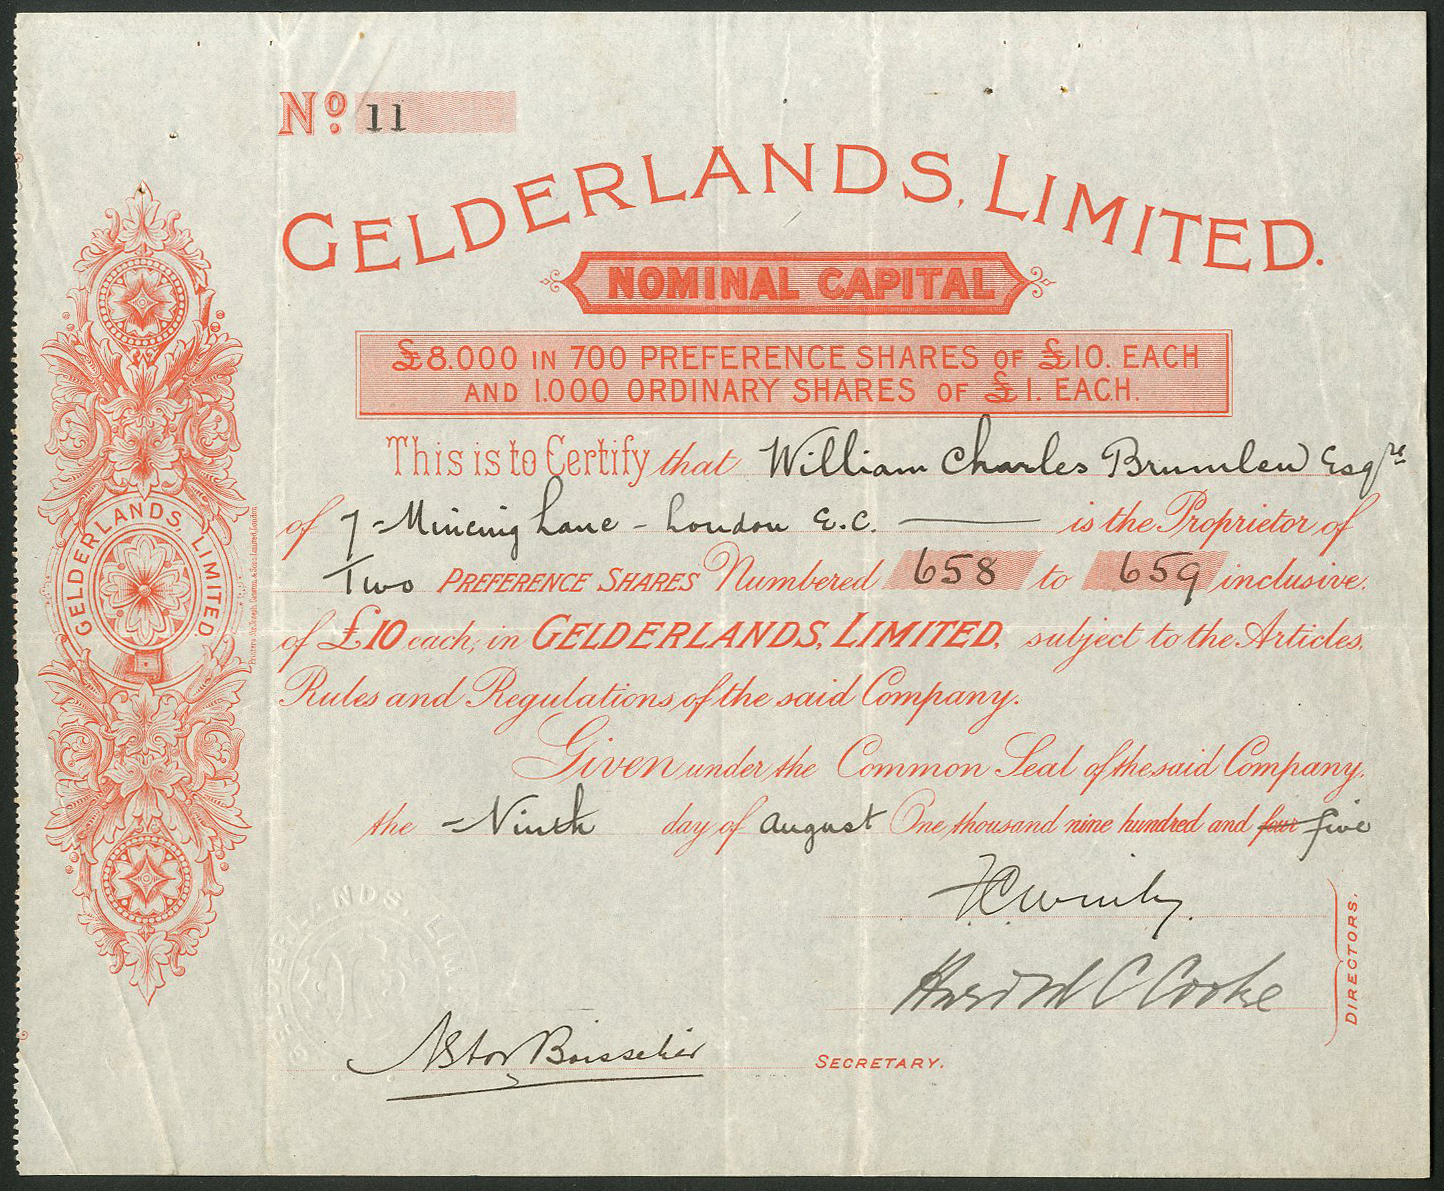 No. 11
GELDERLANDS, LIMITED.
NOMINAL CAPITAL
£8.000 IN 700 PREFERENCE SHARES OF £10. EACH
AND 1.000 ORDINARY SHARES OF £1. EACH.
This is to Certify that William Charles Brumleu Esqre
of 7 - Mincing Lane - London E.C. is the Proprietor of
Two PREFERENCE SHARES Numbered 658 to 659 inclusive.
of £10 each, in GELDERLANDS, LIMITED, subject to the Articles,
Rules and Regulations of the said Company.
Given under the Common Seal of the said Company,
the - Ninth day of August One thousand nine hundred and four five
Harold C Cooke
DIRECTORS.
Nstor Boisselier
SECRETARY.
GELDERLANDS, LIMITED.